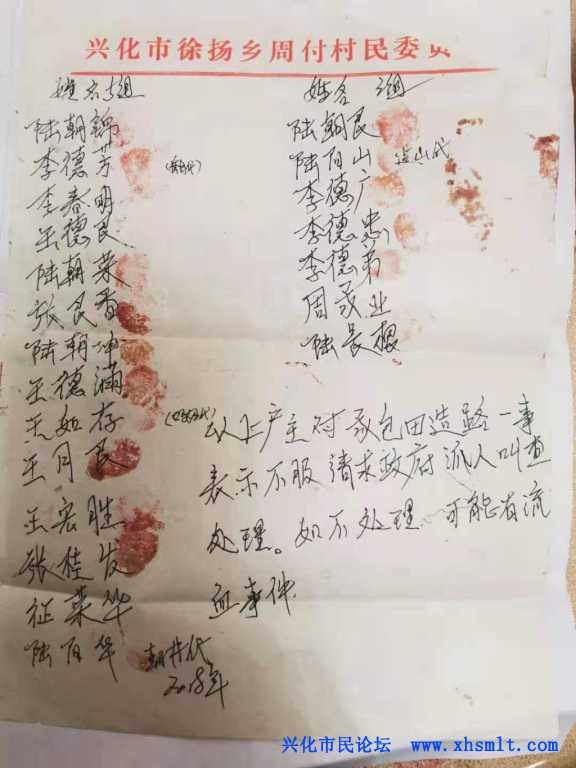 兴化市徐扬乡周付村民委员
姓名 5组
陆朝锦
李德芳
李春明
王德良
陆朝荣
张民香
陆朝坤
王德满
王如存
王月民
王宏胜
张桂发
征荣华
陆百华
朝井代
2018年
姓名 2组
陆朝民
陆百山
李德广
李德忠
李德弟
周晟业
陆长根
以上户主对承包田造路一事
表示不服请求政府派人叫查
处理。如不处理 可能有流
血事件
兴化市民论坛 www.xhsmlt.com